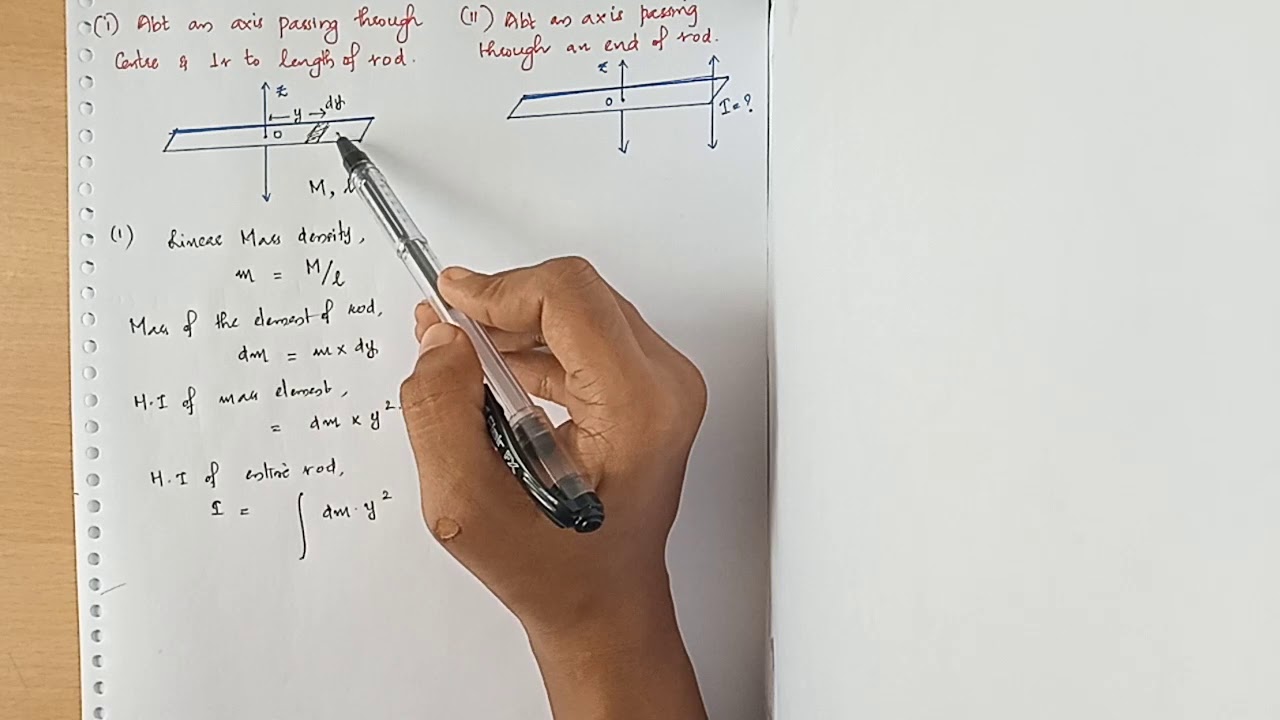 (i) Abt an axis passing through
Centre & ⊥r to length of rod.
z
y
dy
O
M, l
(1) Linear Mass density,
m = M/l
Mass of the element of rod,
dm = m × dy
M.I of mass element,
= dm × y²
M.I of entire rod,
I = ∫ dm · y²
(ii) Abt an axis passing
through an end of rod.
z
O
I = ?